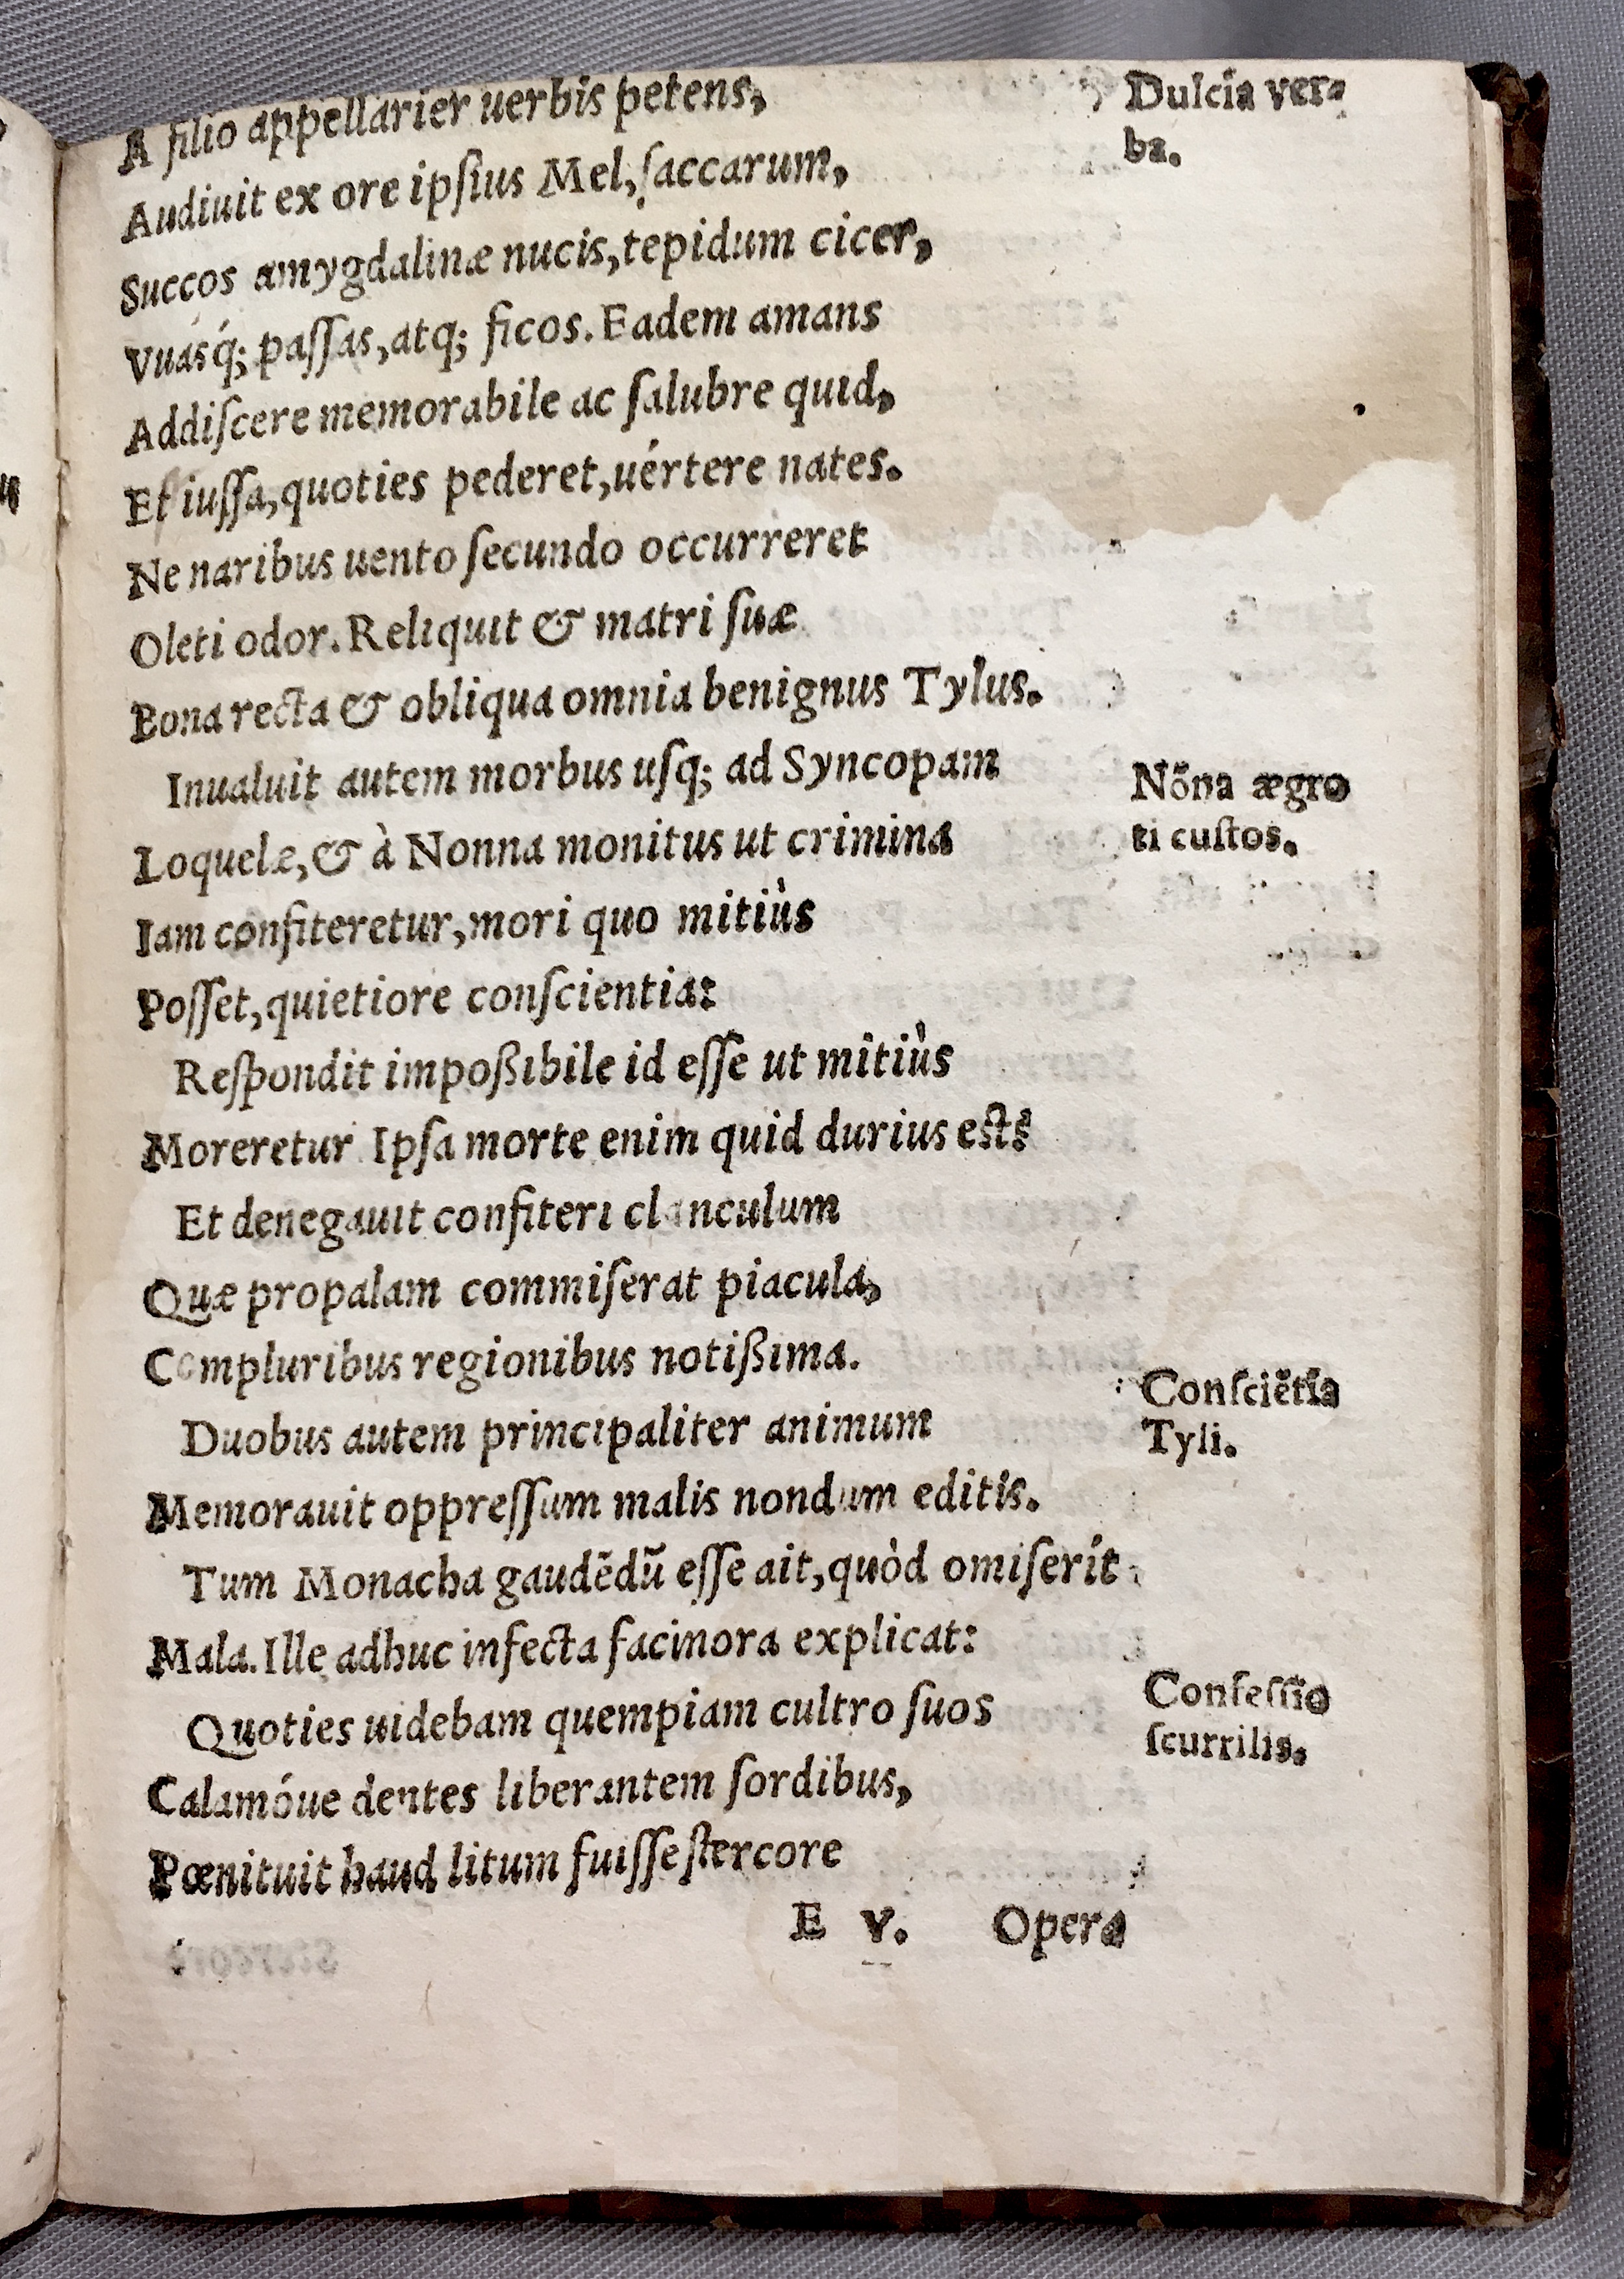 A filio appellarier uerbis petens,
Dulcia ver⸗
ba.
Audiuit ex ore ipſius Mel, ſaccarum,
Succos amygdalinæ nucis, tepidum cicer,
Vuásq́; paſſas, atq; ficos. Eadem amans
Addiſcere memorabile ac ſalubre quid,
Et iuſſa, quoties pederet, uértere nates.
Ne naribus uento ſecundo occurreret
Oleti odor. Reliquit & matri ſuæ
Bona recta & obliqua omnia benignus Tylus.
Inualuit autem morbus uſq; ad Syncopam
Nõna ægro
ti cuſtos.
Loquelæ, & à Nonna monitus ut crimina
Iam confiteretur, mori quo mitiùs
Poſſet, quietiore conſcientia:
Reſpondit impoßibile id eſſe ut mitiùs
Moreretur. Ipſa morte enim quid durius est?
Et denegauit confiteri clanculum
Quæ propalam commiſerat piacula,
Compluribus regionibus notißima.
Duobus autem principaliter animum
Conſciẽtia
Tyli.
Memorauit oppreſſum malis nondum editis.
Tum Monacha gaudẽdũ eſſe ait, quòd omiſerit
Mala. Ille adhuc infecta facinora explicat:
Quoties uidebam quempiam cultro ſuos
Confeſſio
ſcurrilis.
Calamóue dentes liberantem ſordibus,
Pœnituit haud litum fuiſſe ſtercore
E v. Opera